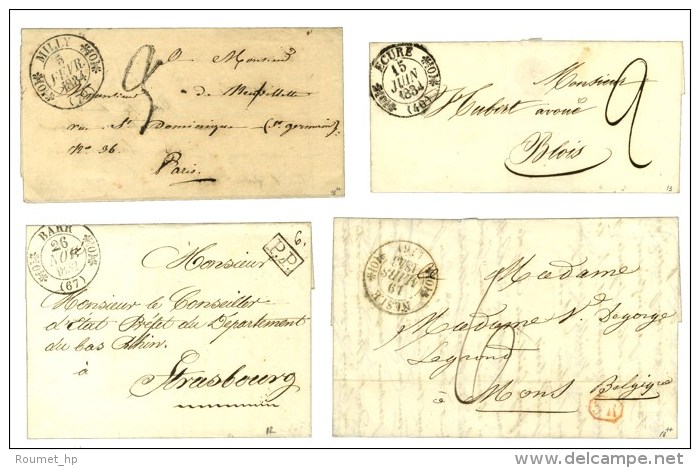 MILLY
5
FEVR.
1834
A Monsieur
Monsieur
de
rue St Dominique (St germain)
No 26.
Paris.
ECURE
15
JUIN
1834
(40)
Monsieur
Hubert avoué
Blois
9
13
BARR
26
1837
(67)
P.P.
6.
Monsieur
Monsieur le Conseiller
d'Etat Préfet du Département
du bas Rhin.
à
Strasbourg
12
NESLE
19
Madame
Madame Ve Degorge
Legrand
à Mons Belgique
6
Auteur: Roumet_hp
delcampe.net